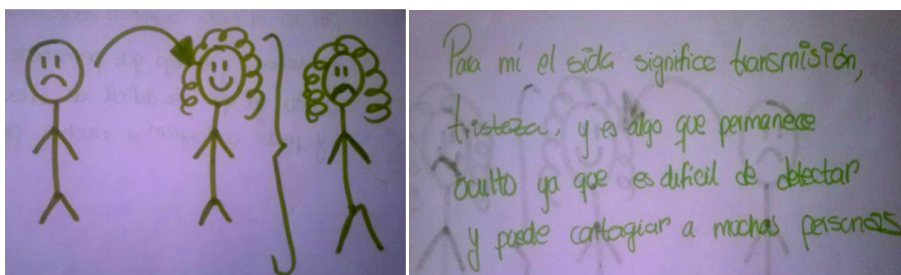 Para mí el sida significe transmisión,
tristeza, y es algo que permanece
oculto ya que es dificil de detectar
y puede contagiar a muchas personas